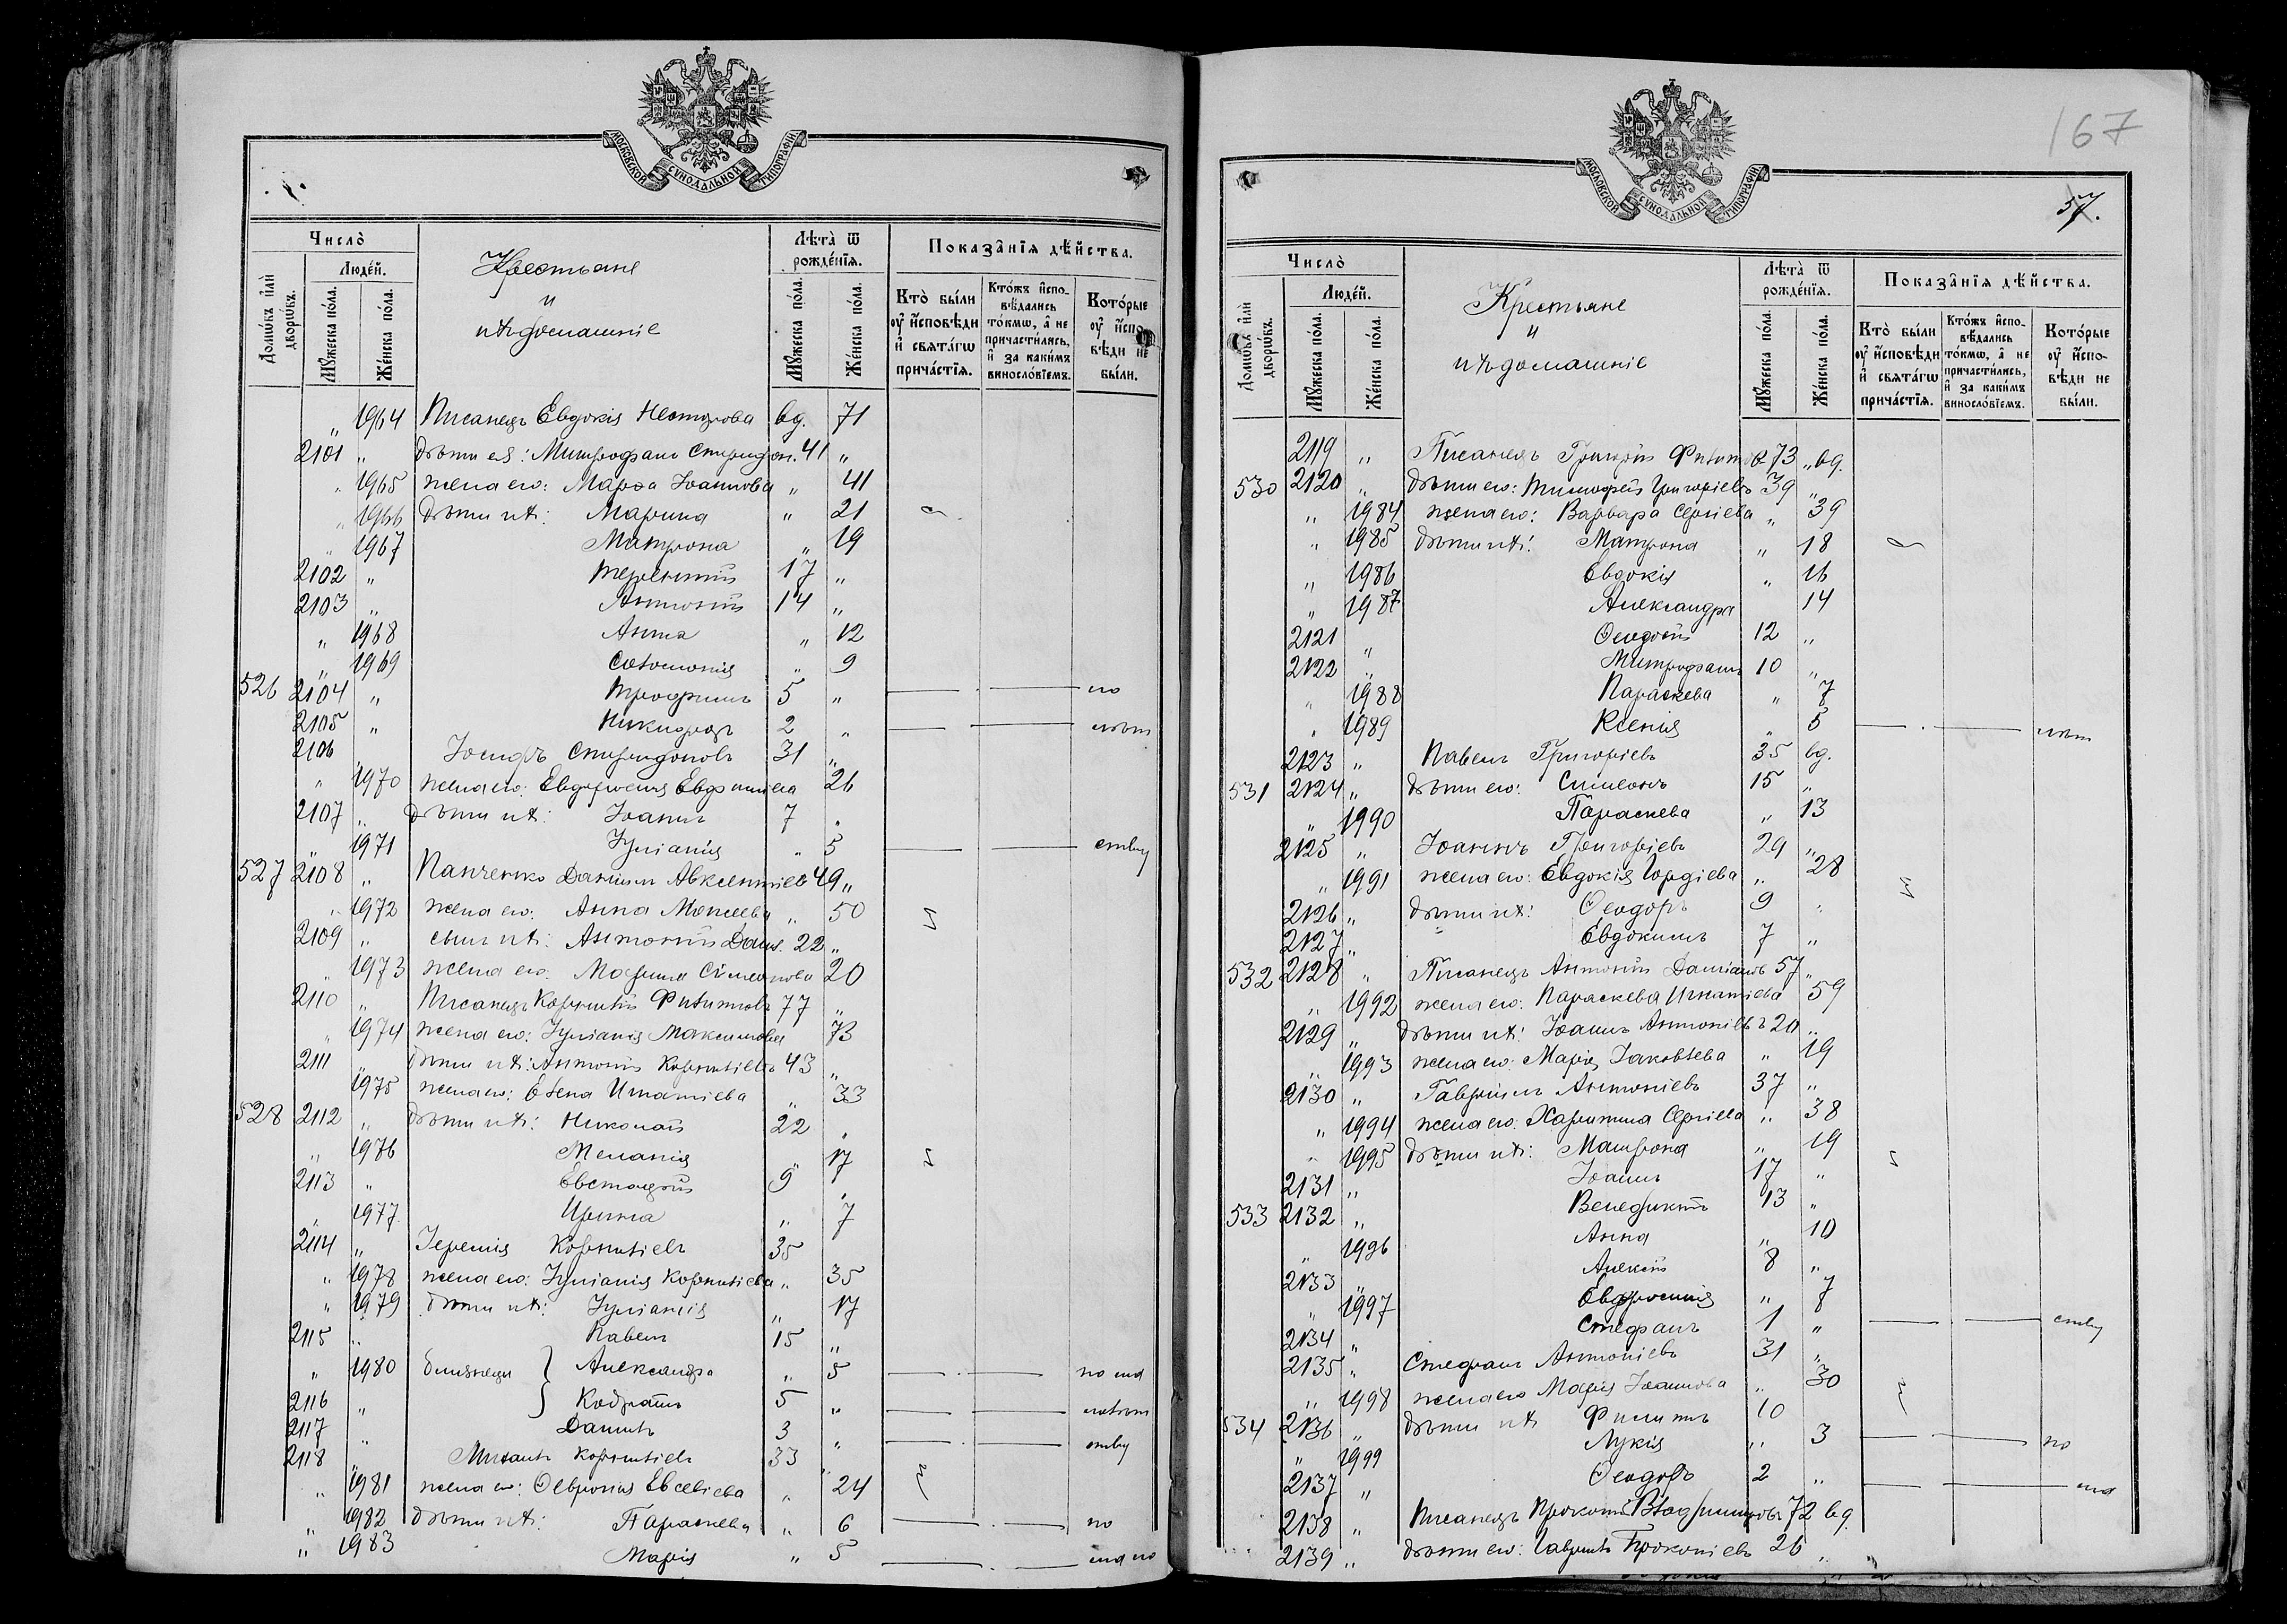 МОСКОВСКОЙ СѴНОДАЛЬНОЙ ТИПОГРАФІИ
Число̀
Домѡ́въ и҆лѝ дворѡ́въ.
Люде́й.
Мꙋ́жеска по́ла.
Же́нска по́ла.
Крестьяне
и
ихъ домашніе
Лѣта̀ ѿ рожде́нїя.
Мꙋ́жеска по́ла.
Же́нска по́ла.
Показа̂нїя дѣ́йства.
Кто̀ бы́ли оу҆ и҆сповѣди и҆ свята́гѡ прича́стїя.
Кто́жъ и҆сповѣ́дались то́кмѡ, а҆ не причасти́лись, и҆ за каки́мъ винослѡ́вїемъ.
Кото́рые оу҆ и҆сповѣди не бы́ли.
„ 1964 Писанецъ Евдокія Несторова вд. 71
2101 „ дѣти ея: Митрофанъ Спиридон. 41 „
„ 1965 жена его: Марѳа Іоаннова „ 41
„ 1966 Дѣти ихъ: Марина „ 21
„ 1967 Матрона „ 19
2102 „ Терентій 17 „
2103 „ Антоній 14 „
„ 1968 Анна „ 12
„ 1969 Соломонія „ 9
526 2104 „ Трофимъ 5 „ — . — по
2105 „ Никифоръ 2 „ — . — лѣт
2106 „ Іосифъ Спиридоновъ 31 „
„ 1970 жена его: Евфросинія 26
2107 „ дѣти ихъ: Іоаннъ 7 „
„ 1971 Іуліанія „ 5 — . —
527 2108 „ Панченко Даніилъ Авксентіев 49 „
„ 1972 жена его: Анна Моисеева „ 50
2109 „ сынъ ихъ: Антоній Данил. 22 „
„ 1973 жена его: Марина Симеонова 20
2110 „ Писанецъ Корнилій Филиповъ 77 „
„ 1974 жена его: Іуліанія Максимова 73
2111 „ дѣти ихъ: Антоній Корниліевъ 43 „
„ 1975 жена его: Елена Игнатіева „ 33
528 2112 „ дѣти ихъ: Николай 22 „
„ 1976 Меланія 17
2113 „ Евстафій 9 „
„ 1977 Ирина „ 7
2114 „ Іеремія Корниліевъ 35
„ 1978 жена его: Іуліанія Корниліева „ 35
„ 1979 дѣти ихъ: Іуліанія „ 17
2115 „ Павелъ 15 „
„ 1980 близнецы } Александра „ 5 — . —
2116 „ Кодратъ 5 „ — . —
2117 „ Даніилъ 3 „ — . —
2118 „ Михаилъ Корниліевъ 33 „
„ 1981 жена его: Ѳевронія Евсевіева „ 24
„ 1982 дѣти ихъ: Параскева „ 6 — . — по
„ 1983 Марія „ 5 — . —
167
57.
МОСКОВСКОЙ СѴНОДАЛЬНОЙ ТИПОГРАФІИ
Число̀
Домѡ́въ и҆лѝ дворѡ́въ.
Люде́й.
Мꙋ́жеска по́ла.
Же́нска по́ла.
Крестьяне
и
ихъ домашніе
Лѣта̀ ѿ рожде́нїя.
Мꙋ́жеска по́ла.
Же́нска по́ла.
Показа̂нїя дѣ́йства.
Кто̀ бы́ли оу҆ и҆сповѣди и҆ свята́гѡ прича́стїя.
Кто́жъ и҆сповѣ́дались то́кмѡ, а҆ не причасти́лись, и҆ за каки́мъ винослѡ́вїемъ.
Кото́рые оу҆ и҆сповѣди не бы́ли.
2119 „ Писанецъ Григорій Филипов 73 „ вд.
530 2120 „ дѣти его: Тимофей Григоріевъ 39 „
„ 1984 жена его: Варвара Сергіева „ 39
„ 1985 дѣти ихъ: Матрона „ 18
„ 1986 Евдокія „ 16
„ 1987 Александра 14
2121 „ Ѳеодосій 12 „
2122 „ Митрофанъ 10 „
„ 1988 Параскева „ 7
„ 1989 Ксенія „ 5 — . — лѣт
2123 „ Павелъ Григоріевъ 35 вд.
531 2124 „ дѣти его: Симеонъ 15 „
„ 1990 Параскева „ 13
2125 „ Іоаннъ Григоріевъ 29 „
„ 1991 жена его: Евдокія Гордіева „ 28
2126 „ дѣти ихъ: Ѳеодоръ 9 „
2127 „ Евдокимъ 7 „
532 2128 „ Писанецъ Антоній Даміанов 57 „
„ 1992 жена его: Параскева Игнатіева 59
2129 „ дѣти ихъ: Іоаннъ Антоніевъ 20 „
„ 1993 жена его: Марія Іаковлева „ 19
2130 „ Гавріилъ Антоніевъ 37 „
„ 1994 жена его: Харитина Сергіева „ 38
„ 1995 дѣти ихъ: Матрона „ 19
2131 „ Іоаннъ 17 „
533 2132 „ Венедиктъ 13 „
„ 1996 Анна „ 10
2133 „ Алексій 8 „
„ 1997 Евфросинія „ 7
2134 „ Стефанъ 1 „ — . —
2135 „ Стефанъ Антоніевъ 31 „
„ 1998 жена его Марія Іоаннова „ 30
534 2136 „ дѣти ихъ Филиппъ 10
„ 1999 Лукія „ 3 — . — по
2137 „ Ѳеодоръ 2 „ — . —
2138 „ Писанецъ Прокопій Владиміровъ 72 вд.
2139 „ дѣти его: Гавріилъ Прокопіевъ 26 „